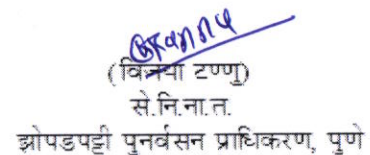 (विनया टण्णु)
से.नि.ना.त.
झोपडपट्टी पुनर्वसन प्राधिकरण, पुणे